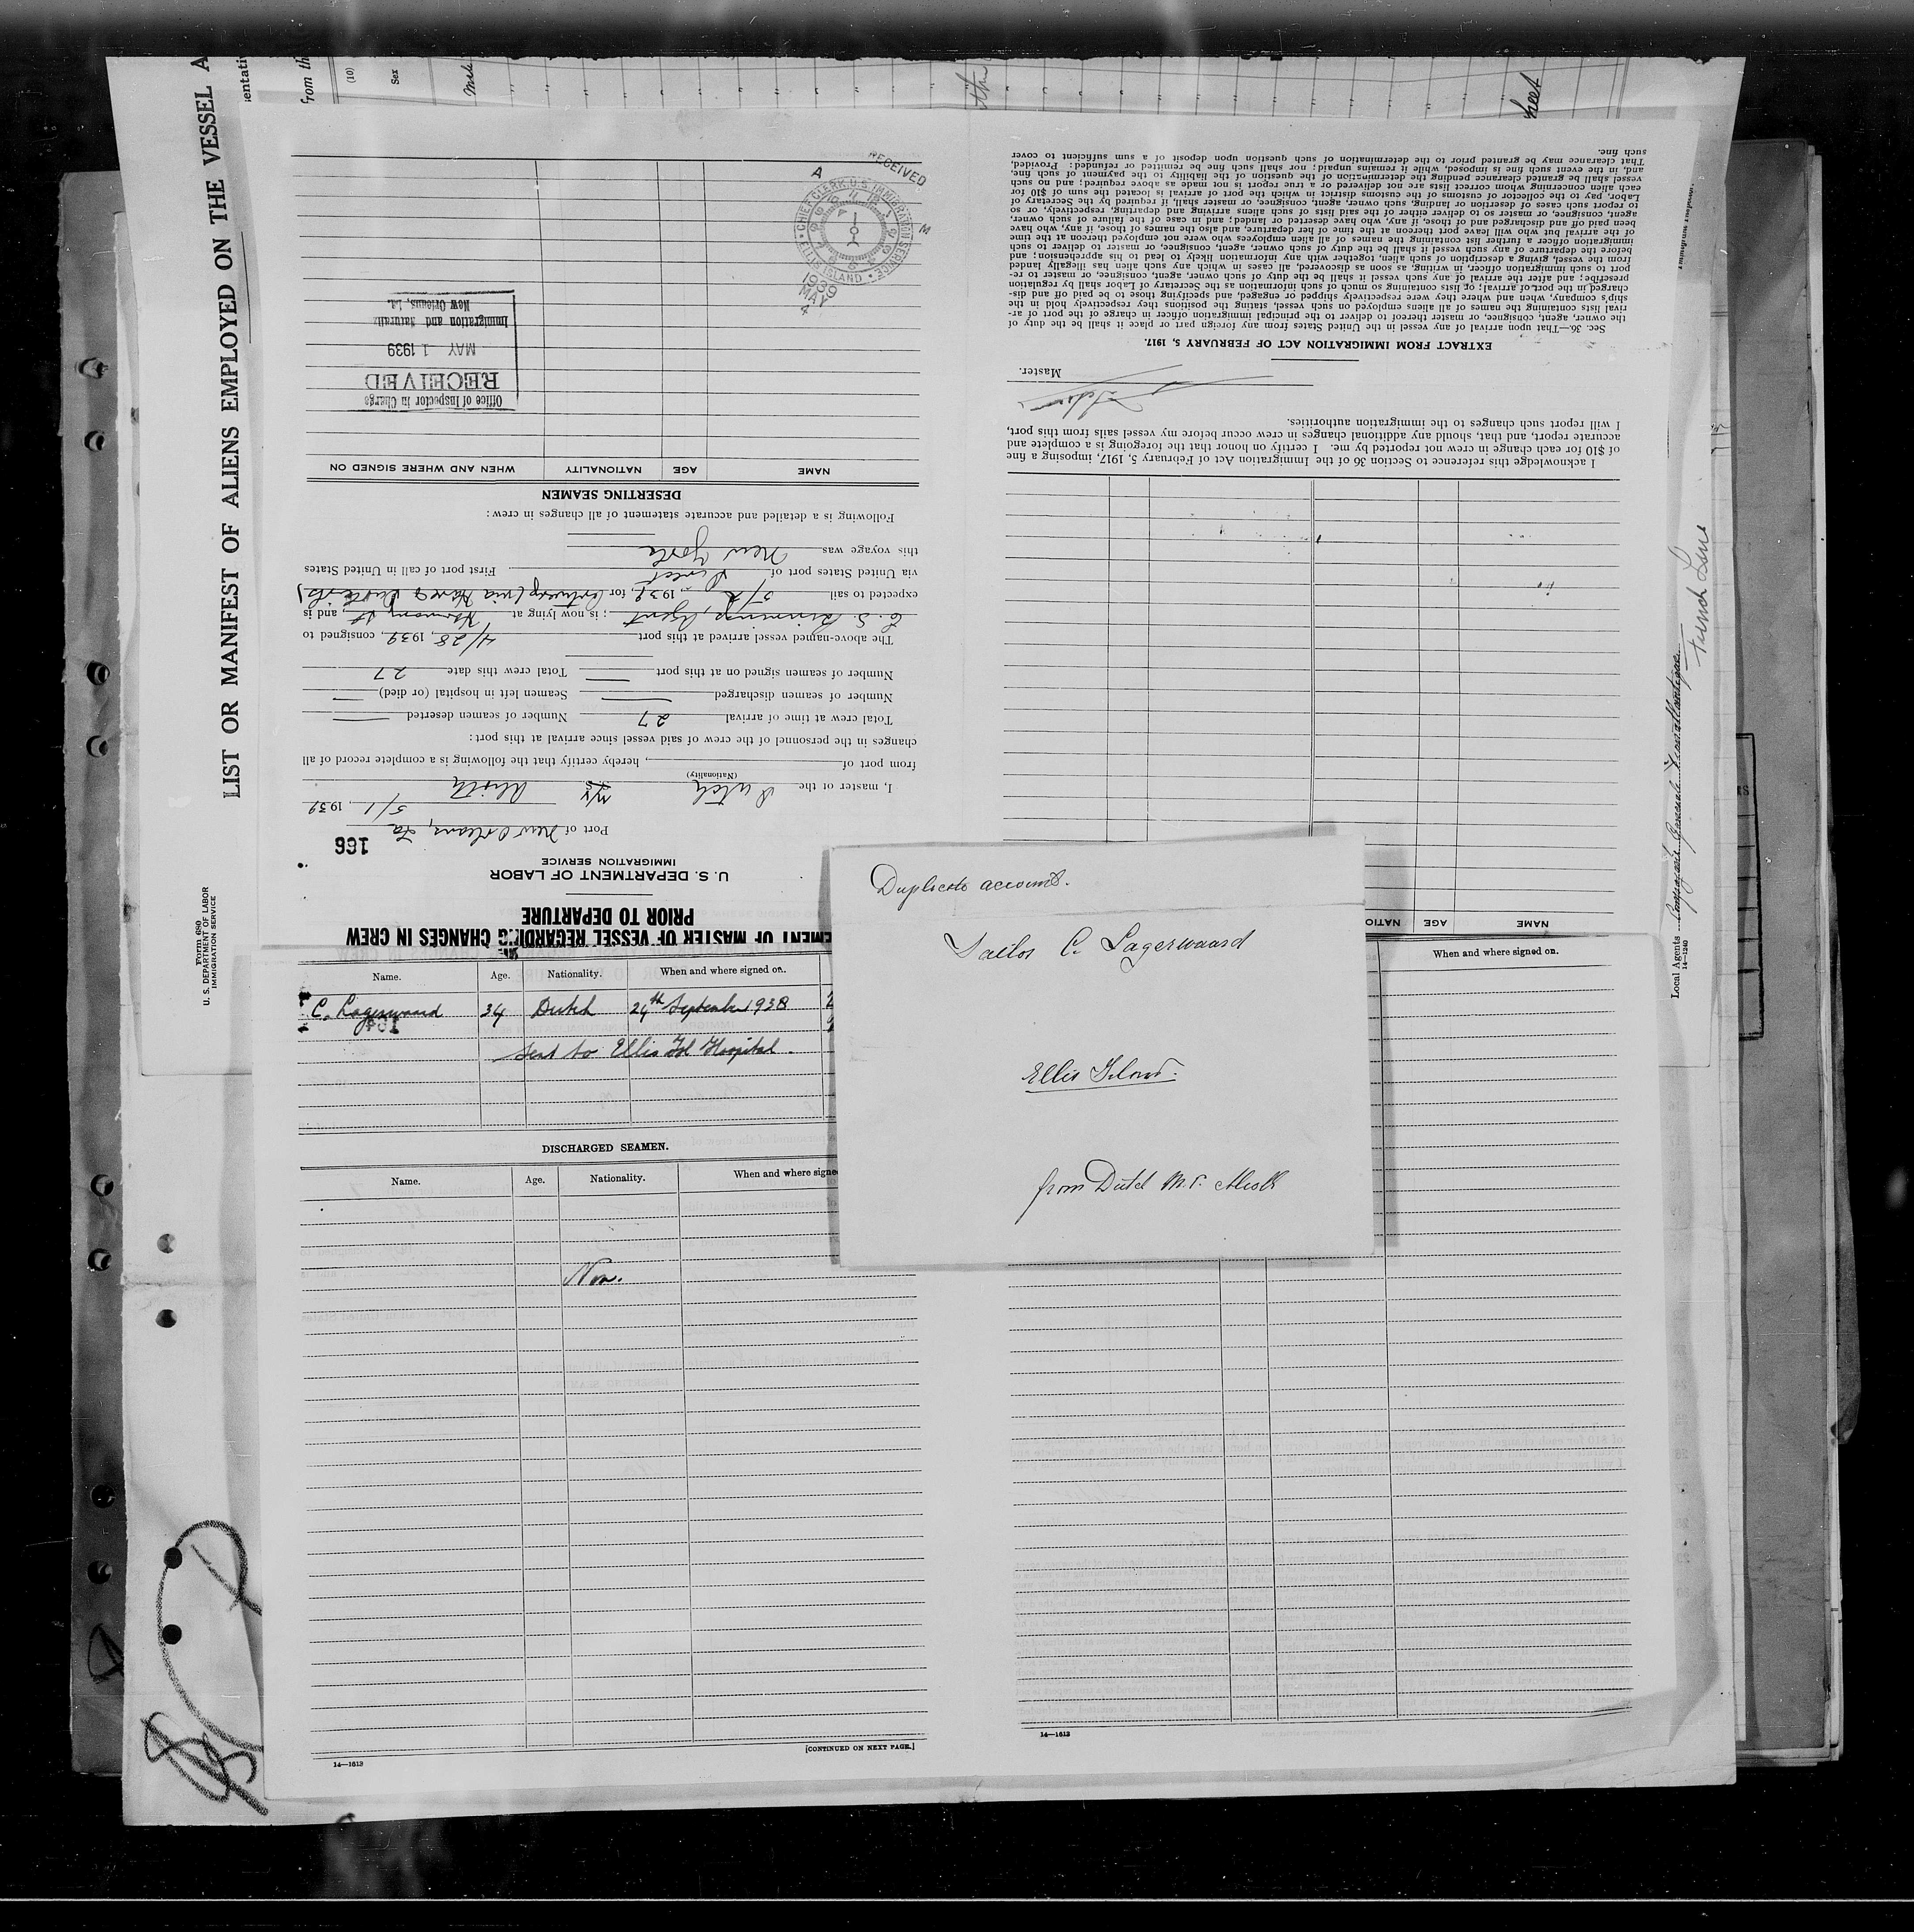 LIST OR MANIFEST OF ALIENS EMPLOYED ON THE VESSEL A
Form 680
U. S. DEPARTMENT OF LABOR
IMMIGRATION SERVICE
from th
(10)
Sex
EMENT OF MASTER OF VESSEL REGARDING CHANGES IN CREW
PRIOR TO DEPARTURE
U. S. DEPARTMENT OF LABOR
IMMIGRATION SERVICE
166
Port of New Orleans, La
5/1, 1939
I, master of the Dutch
(Nationality)
from port of , hereby certify that the following is a complete record of all
changes in the personnel of the crew of said vessel since arrival at this port:
Total crew at time of arrival 27 Number of seamen deserted
Number of seamen discharged Seamen left in hospital (or died)
Number of seamen signed on at this port Total crew this date 27
The above-named vessel arrived at this port 4/28, 1939, consigned to
Agent ; is now lying at , and is
expected to sail 5/2, 1939, for Antwerp (via
via United States port of Direct First port of call in United States
this voyage was New York
Following is a detailed and accurate statement of all changes in crew:
DESERTING SEAMEN
NAME AGE NATIONALITY WHEN AND WHERE SIGNED ON
Office of Inspector in Charge
RECEIVED
MAY 1 1939
Immigration and Naturaliz
New Orleans, La.
RECEIVED
A M
CHIEF CLERK U.S. IMMIGRATION SERVICE
ELLIS ISLAND
1939
MAY
4
NAME AGE NATIO
I acknowledge this reference to Section 36 of the Immigration Act of February 5, 1917, imposing a fine
of $10 for each change in crew not reported by me. I certify on honor that the foregoing is a complete and
accurate report, and that, should any additional changes in crew occur before my vessel sails from this port,
I will report such changes to the immigration authorities.
Master.
EXTRACT FROM IMMIGRATION ACT OF FEBRUARY 5, 1917.
Sec. 36—That upon arrival of any vessel in the United States from any foreign port or place it shall be the duty of
the owner, agent, consignee, or master thereof to deliver to the principal immigration officer in charge of the port of ar-
rival lists containing the names of all aliens employed on such vessel, stating the positions they respectively hold in the
ship's company, when and where they were respectively shipped or engaged, and specifying those to be paid off and dis-
charged in the port of arrival; or lists containing so much of such information as the Secretary of Labor shall by regulation
prescribe; and after the arrival of any such vessel it shall be the duty of such owner, agent, consignee, or master to re-
port to such immigration officer, in writing, as soon as discovered, all cases in which any such alien has illegally landed
from the vessel, giving a description of such alien, together with any information likely to lead to his apprehension; and
before the departure of any such vessel it shall be the duty of such owner, agent, consignee, or master to deliver to such
immigration officer a further list containing the names of all alien employees who were not employed thereon at the time
of the arrival but who will leave port thereon at the time of her departure, and also the names of those, if any, who have
been paid off and discharged and of those, if any, who have deserted or landed; and in case of the failure of such owner,
agent, consignee, or master so to deliver either of the said lists of such aliens arriving and departing, respectively, or so
to report such cases of desertion or landing, such owner, agent, consignee, or master shall, if required by the Secretary of
Labor, pay to the collector of customs of the customs district in which the port of arrival is located the sum of $10 for
each alien concerning whom correct lists are not delivered or a true report is not made as above required; and no such
vessel shall be granted clearance pending the determination of the question of the liability to the payment of such fine,
and, in the event such fine is imposed, while it remains unpaid; nor shall such fine be remitted or refunded: Provided,
That clearance may be granted prior to the determination of such question upon deposit of a sum sufficient to cover
such fine.
Local Agents Compagnie Generale Transatlantique
French Line
14—1240
Name. Age. Nationality. When and where signed on.
C. Lagerwaard 34 Dutch 24th September 1938
164
Sent to Ellis Isl Hospital.
DISCHARGED SEAMEN.
Name. Age. Nationality. When and where signe
Non.
[CONTINUED ON NEXT PAGE.]
14—1613
Duplicate account.
Sailor C. Lagerwaard
Ellis Island.
from Dutch M.S.
When and where signed on.
14—1613